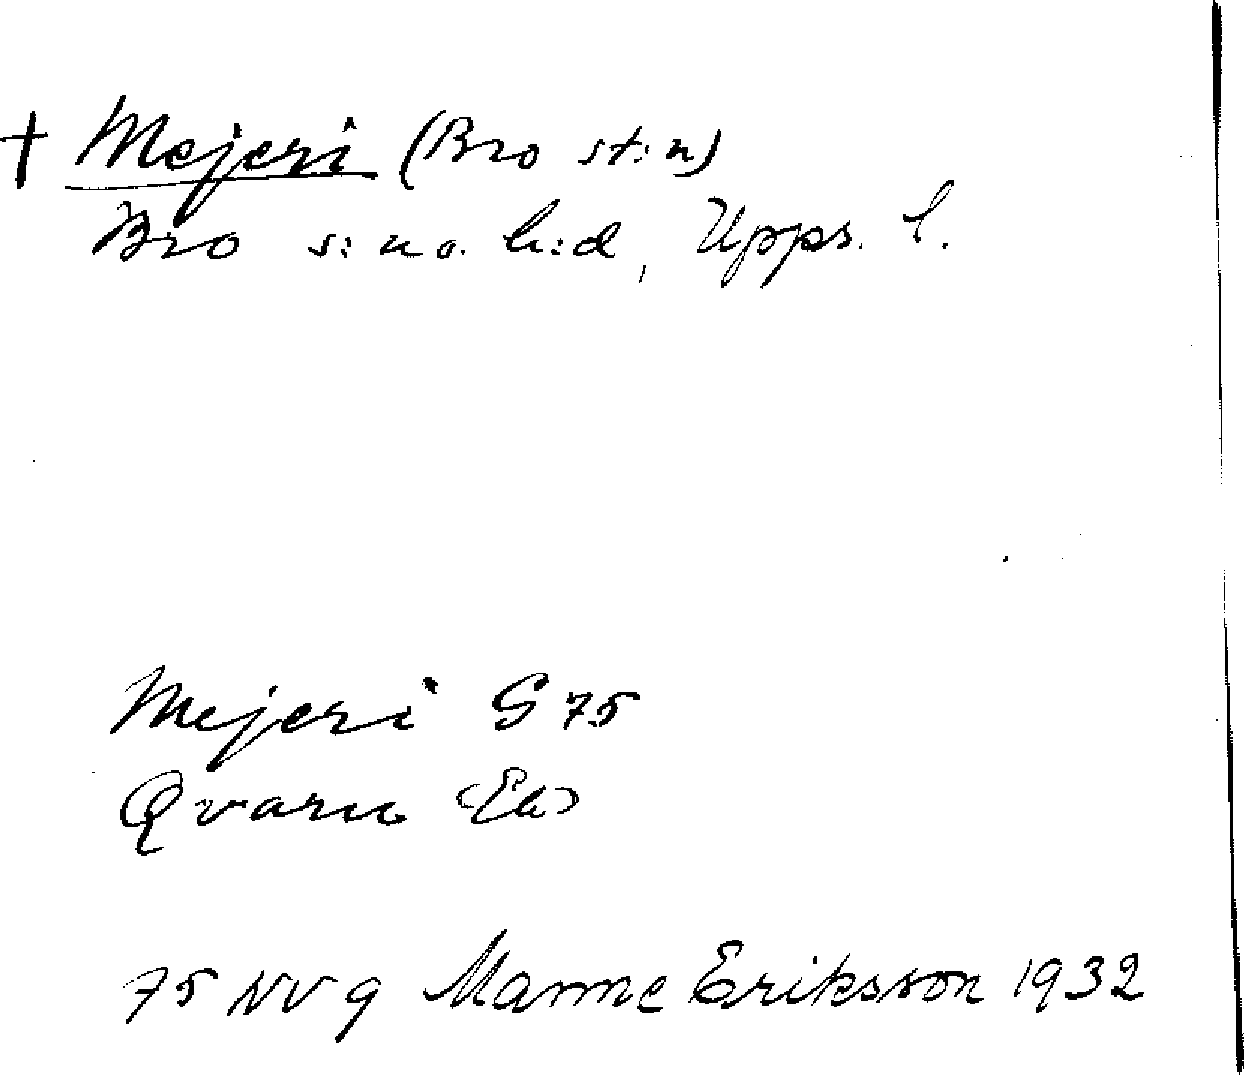 † Mejeri (Bro st:n)
Bro s:n o. h:d, Upps. l.
Mejeri G 75
Qvarn (Ek)
75 NV g Manne Eriksson 1932